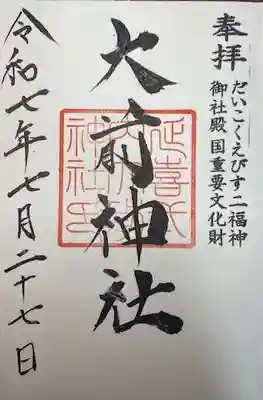 奉拝
だいこくえびす二福神
御社殿国重要文化財
大前神社
延喜式
内大前
神社之印
令和七年七月二十七日